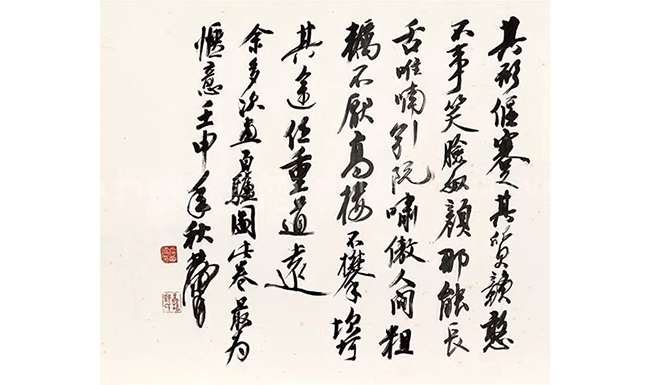 其形偃蹇其質憨
不事笑臉奴顏那能長
舌唯喃引吭嘯傲人間粗
糲不厭高樓不攀坎坷
其途任重道遠
余多次畫百驢圖此卷最為
愜意壬申年秋黃胄